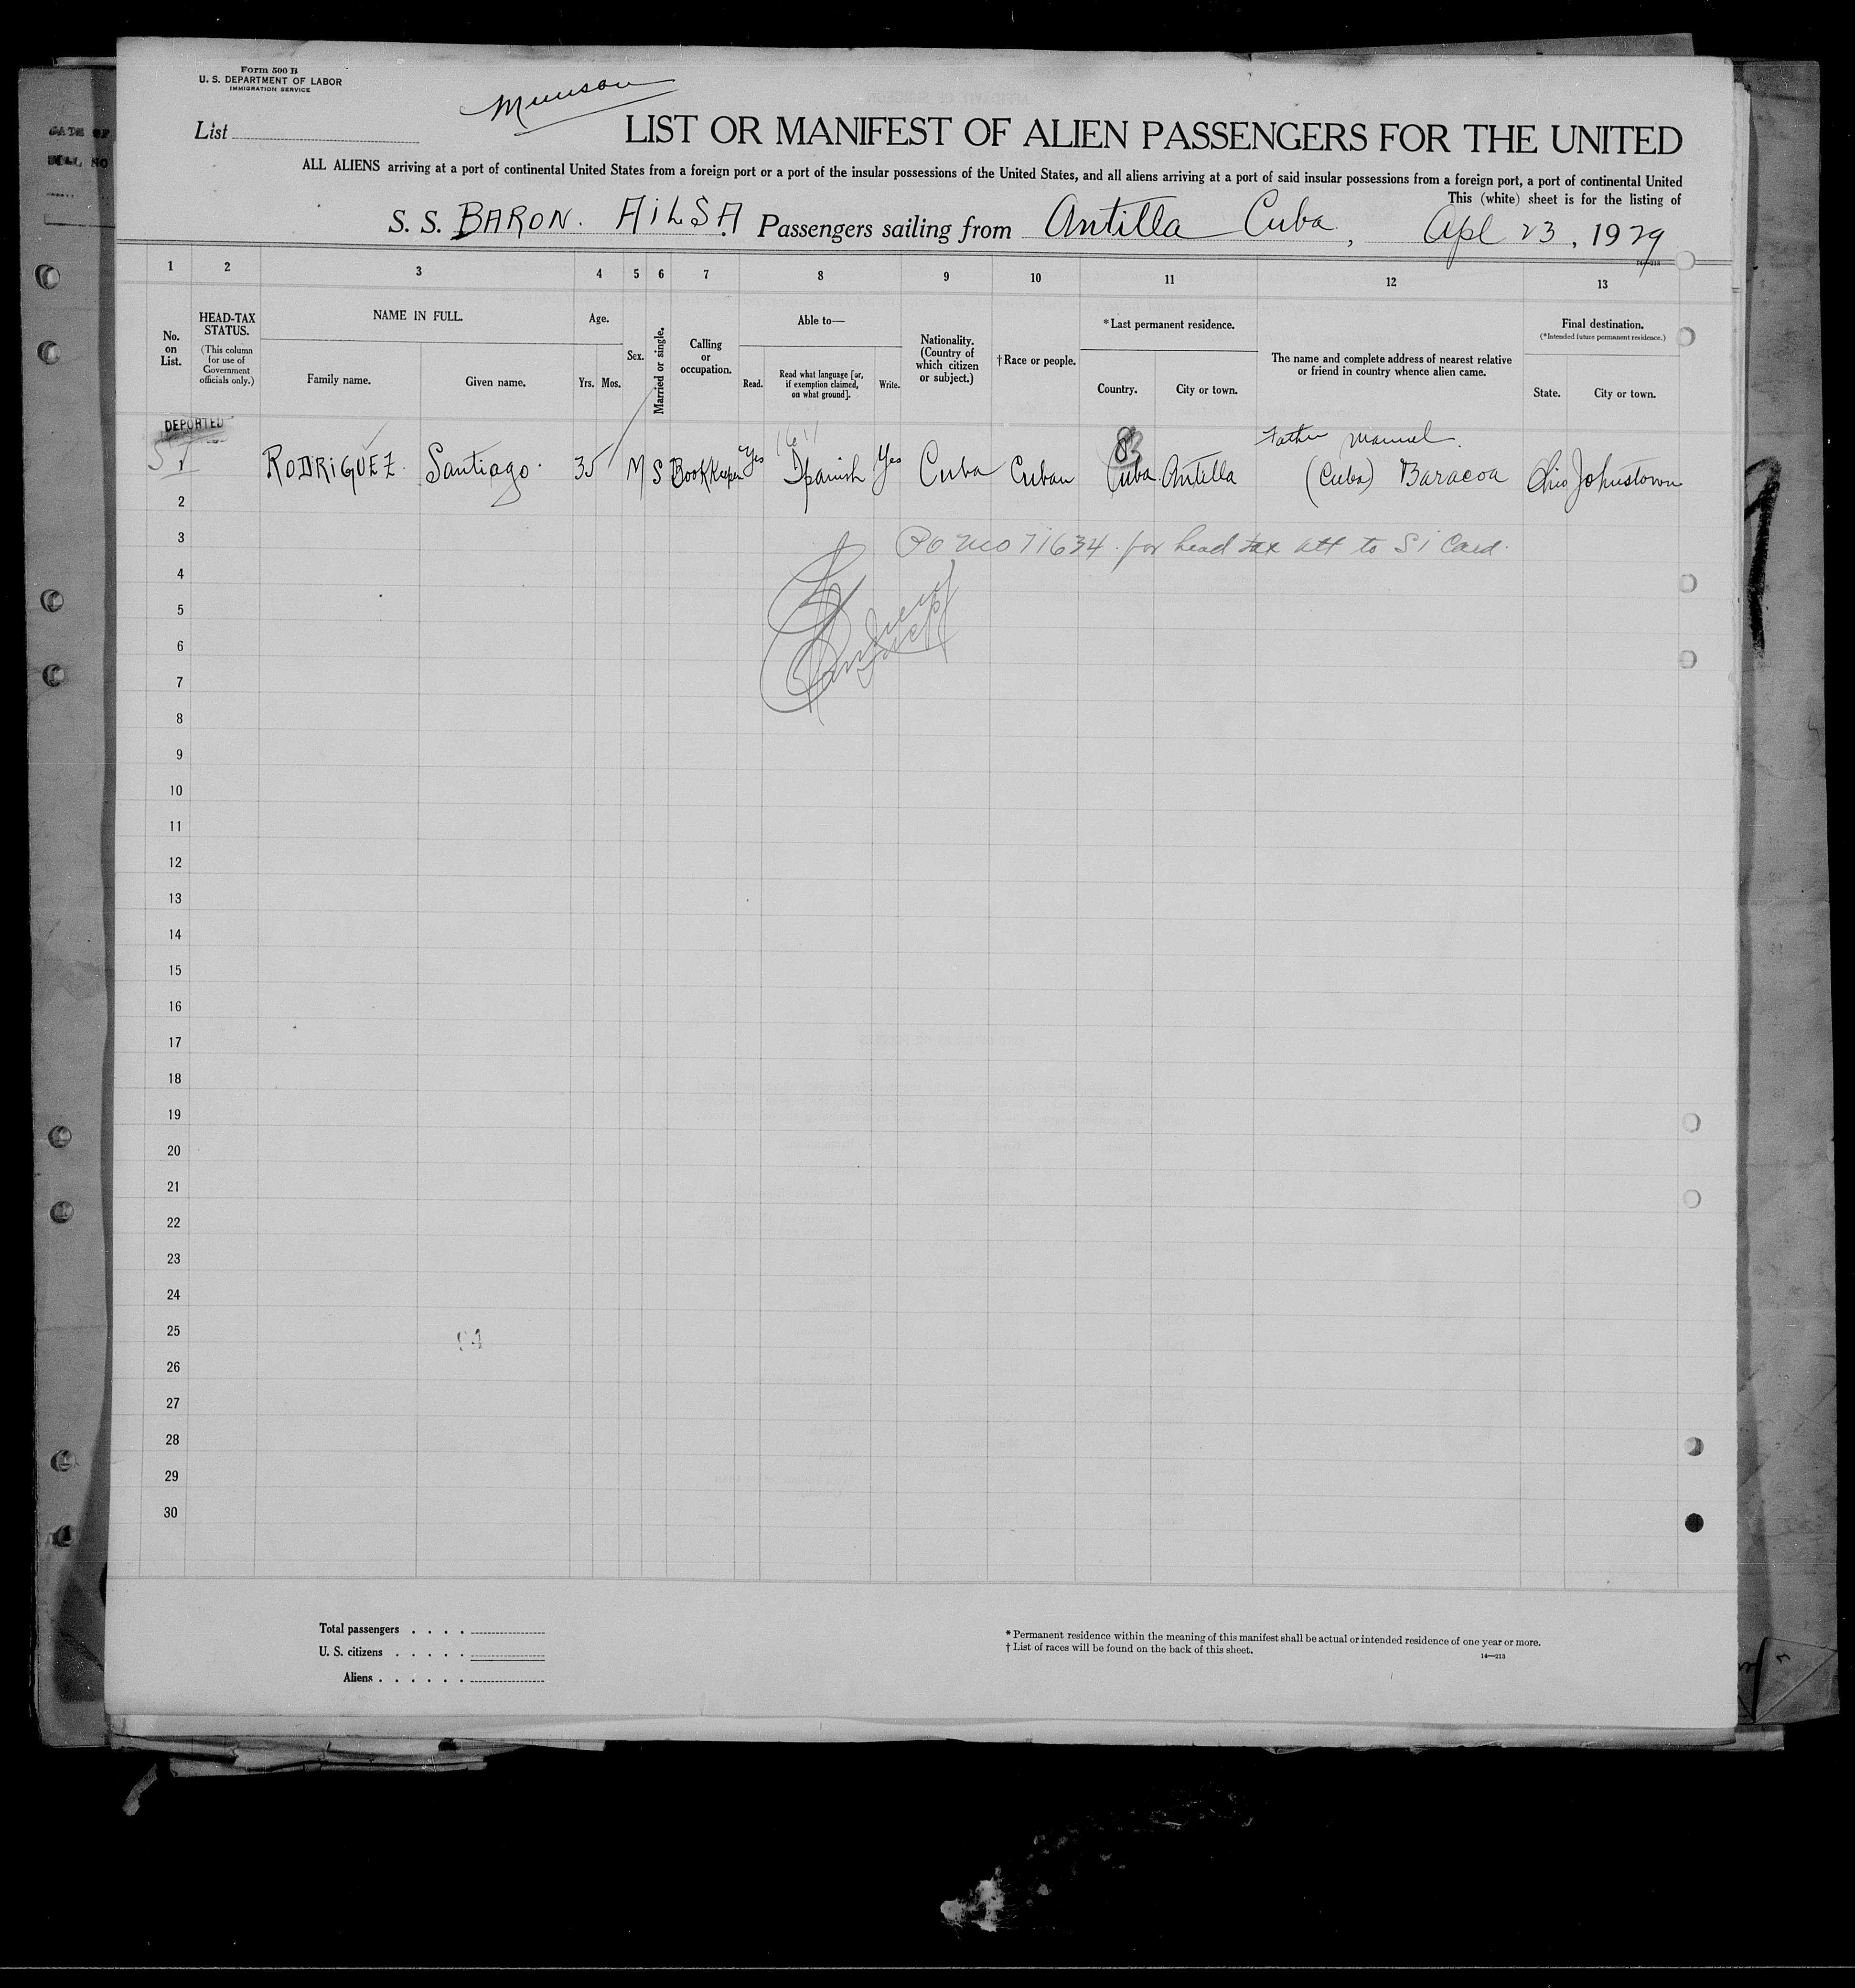 Form 500 B
U. S. DEPARTMENT OF LABOR
IMMIGRATION SERVICE
Munson
List
LIST OR MANIFEST OF ALIEN PASSENGERS FOR THE UNITED
ALL ALIENS arriving at a port of continental United States from a foreign port or a port of the insular possessions of the United States, and all aliens arriving at a port of said insular possessions from a foreign port, a port of continental United
This (white) sheet is for the listing of
S. S. BARON. AILSA Passengers sailing from Antilla Cuba, Apl 23, 1929
1 2 3 4 5 6 7 8 9 10 11 12 13
No. on List.
HEAD-TAX STATUS.
(This column for use of Government officials only.)
NAME IN FULL.
Family name.
Given name.
Age.
Yrs. Mos.
Sex.
Married or single.
Calling or occupation.
Able to—
Read.
Read what language [or, if exemption claimed, on what ground].
Write.
Nationality. (Country of which citizen or subject.)
†Race or people.
*Last permanent residence.
Country.
City or town.
The name and complete address of nearest relative or friend in country whence alien came.
Final destination.
(*Intended future permanent residence.)
State.
City or town.
DEPORTED
Father Manuel.
1 RODRIGUEZ. Santiago. 35 M S BookKeeper Yes Spanish Yes Cuba Cuban Cuba Antilla (Cuba) Baracoa Ohio Johnstown
2
3 PO MO 71634 for head tax att to S I Card.
4
5
6
7
8
9
10
11
12
13
14
15
16
17
18
19
20
21
22
23
24
25
26
27
28
29
30
Total passengers . . . .
U. S. citizens . . . . .
Aliens . . . . . .
* Permanent residence within the meaning of this manifest shall be actual or intended residence of one year or more.
† List of races will be found on the back of this sheet.
14—213